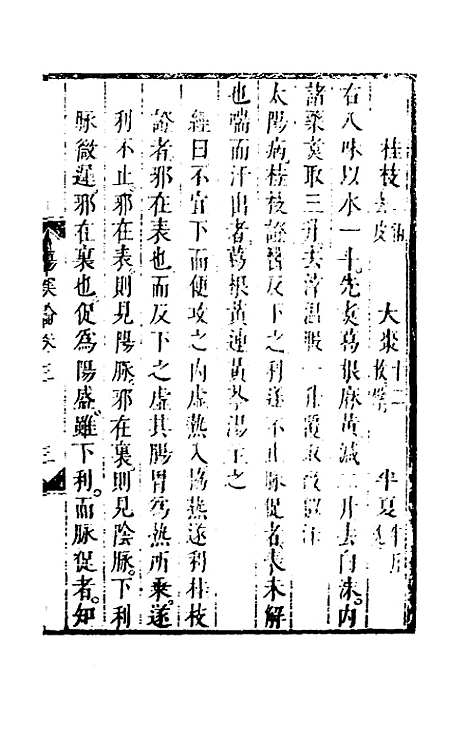 桂枝二兩去皮 大棗十二枚擘 半夏半斤洗
右八味以水一斗先煮葛根麻黃減二升去白沫內
諸藥煮取三升去滓溫服一升覆取微似汗
太陽病桂枝證醫反下之利遂不止脉促者表未解
也喘而汗出者葛根黃連黃芩湯主之
經曰不宜下而便攻之內虛熱入協熱遂利桂枝
證者邪在表也而反下之虛其腸胃爲熱所乘遂
利不止邪在表則見陽脉邪在裏則見陰脉下利
脉微遲邪在裏也促爲陽盛雖下利而脉促者知
傷寒論卷三 三